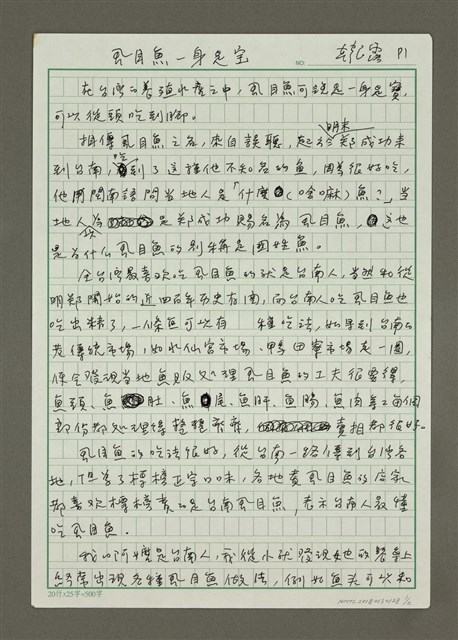 虱目魚一身是宝
NO: 韓露 P1
在台灣的養殖水產之中,虱目魚可說是一身是寶,
可以從頭吃到腳。
相傳虱目魚之名,來自誤聽,起今明末鄭成功來
到台南,吃到了這種他不知名的魚,因為很好吃,
他用閩南語問当地人是「什麼(啥嘛)魚?」当
地人以為是鄭成功賜名為虱目魚,這也
是为什么虱目魚的別稱是國姓魚。
全台灣最喜欢吃虱目魚的就是台南人,当然和從
明郑開始的近四百年历史有関,而台南人吃虱目魚也
吃出精了,一條魚可以有 種吃法,如果到台南的
老傳統市場,如水仙宮市場、鴨母寮市場走一圈,
便会發現当地魚販处理虱目魚的工夫很要得,
魚頭、魚肚、魚尾、魚肝、魚腸、魚肉等等每個
部份都处理得整整齊齊,賣相都很好。
虱目魚的吃法很好,從台南一路傳到台灣各
地,但為了標榜正宗口味,各地賣虱目魚的店家
都喜欢標榜賣的是台南虱目魚,表示台南人最懂
吃虱目魚。
我的阿嬤是台南人,我從小就發現她的餐桌上
經常出現各種虱目魚做法,例如魚头可以和
20行×25字=500字